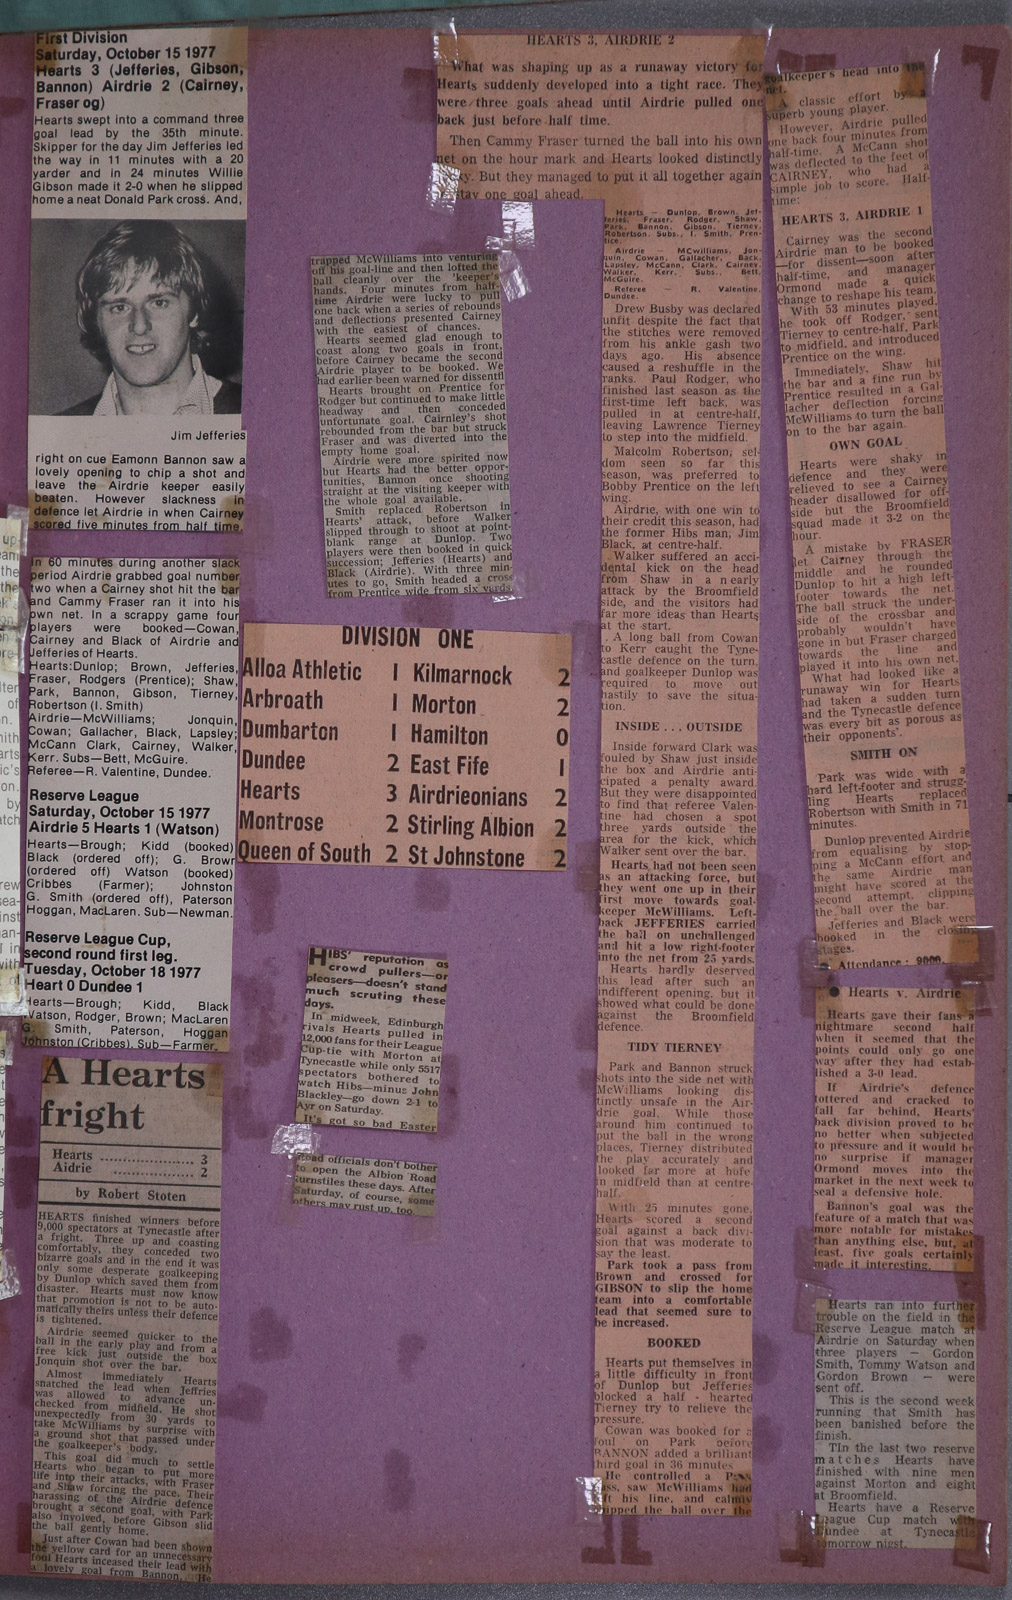 First Division
Saturday, October 15 1977
Hearts 3 (Jefferies, Gibson,
Bannon) Airdrie 2 (Cairney,
Fraser og)
Hearts swept into a command three
goal lead by the 35th minute.
Skipper for the day Jim Jefferies led
the way in 11 minutes with a 20
yarder and in 24 minutes Willie
Gibson made it 2-0 when he slipped
home a neat Donald Park cross. And,
Jim Jefferies
right on cue Eamonn Bannon saw a
lovely opening to chip a shot and
leave the Airdrie keeper easily
beaten. However slackness in
defence let Airdrie in when Cairney
scored five minutes from half time,
In 60 minutes during another slack
period Airdrie grabbed goal number
two when a Cairney shot hit the bar
and Cammy Fraser ran it into his
own net. In a scrappy game four
players were booked—Cowan,
Cairney and Black of Airdrie and
Jefferies of Hearts.
Hearts:Dunlop; Brown, Jefferies,
Fraser, Rodgers (Prentice); Shaw,
Park, Bannon, Gibson, Tierney,
Robertson (I. Smith)
Airdrie—McWilliams; Jonquin,
Cowan; Gallacher, Black, Lapsley;
McCann Clark, Cairney, Walker,
Kerr. Subs—Bett, McGuire.
Referee—R. Valentine, Dundee.
Reserve League
Saturday, October 15 1977
Airdrie 5 Hearts 1 (Watson)
Hearts—Brough; Kidd (booked)
Black (ordered off); G. Brown
(ordered off) Watson (booked)
Cribbes (Farmer); Johnston
G. Smith (ordered off), Paterson
Hoggan, MacLaren. Sub—Newman.
Reserve League Cup,
second round first leg.
Tuesday, October 18 1977
Heart 0 Dundee 1
Hearts—Brough; Kidd, Black
Watson, Rodger, Brown; MacLaren
G. Smith, Paterson, Hoggan
Johnston (Cribbes). Sub—Farmer.
A Hearts
fright
Hearts ........................ 3
Aidrie ........................ 2
by Robert Stoten
HEARTS finished winners before
9,000 spectators at Tynecastle after
a fright. Three up and coasting
comfortably, they conceded two
bizarre goals and in the end it was
only some desperate goalkeeping
by Dunlop which saved them from
disaster. Hearts must now know
that promotion is not to be auto-
matically theirs unless their defence
is tightened.
Airdrie seemed quicker to the
ball in the early play and from a
free kick just outside the box
Jonquin shot over the bar.
Almost immediately Hearts
snatched the lead when Jeffries
was allowed to advance un-
checked from midfield. He shot
unexpectedly from 30 yards to
take McWilliams by surprise with
a ground shot that passed under
the goalkeeper's body.
This goal did much to settle
Hearts who began to put more
life into their attacks, with Fraser
and Shaw forcing the pace. Their
harassing of the Airdrie defence
brought a second goal, with Park
also involved, before Gibson slid
the ball gently home.
Just after Cowan had been shown
the yellow card for an unnecessary
foul Hearts inceased their lead with
a lovely goal from Bannon. He
trapped McWilliams into venturing
off his goal-line and then lofted the
ball cleanly over the 'keeper's
hands. Four minutes from half-
time Airdrie were lucky to pull
one back when a series of rebounds
and deflections presented Cairney
with the easiest of chances.
Hearts seemed glad enough to
coast along two goals in front,
before Cairney became the second
Airdrie player to be booked. We
had earlier been warned for dissent!
Hearts brought on Prentice for
Rodger but continued to make little
headway and then conceded
unfortunate goal. Cairnley's shot
rebounded from the bar but struck
Fraser and was diverted into the
empty home goal.
Airdrie were more spirited now
but Hearts had the better oppor-
tunities, Bannon once shooting
straight at the visiting keeper with
the whole goal available.
Smith replaced Robertson in
Hearts' attack, before Walker
slipped through to shoot at point-
blank range at Dunlop. Two
players were then booked in quick
succession; Jefferies (Hearts) and
Black (Airdrie). With three min
utes to go, Smith headed a cross
from Prentice wide from six yards.
DIVISION ONE
Alloa Athletic 1 Kilmarnock 2
Arbroath 1 Morton 2
Dumbarton 1 Hamilton 0
Dundee 2 East Fife 1
Hearts 3 Airdrieonians 2
Montrose 2 Stirling Albion 2
Queen of South 2 St Johnstone 2
HIBS' reputation as
crowd pullers—or
pleasers—doesn't stand
much scruting these
days.
In midweek, Edinburgh
rivals Hearts pulled in
12,000 fans for their League
Cup-tie with Morton at
Tynecastle while only 5517
spectators bothered to
watch Hibs—minus John
Blackley—go down 2-1 to
Ayr on Saturday.
It's got so bad Easter
Road officials don't bother
to open the Albion Road
turnstiles these days. After
Saturday, of course, some
others may rust up, too.
HEARTS 3, AIRDRIE 2
What was shaping up as a runaway victory for
Hearts suddenly developed into a tight race. They
were three goals ahead until Airdrie pulled one
back just before half time.
Then Cammy Fraser turned the ball into his own
net on the hour mark and Hearts looked distinctly
But they managed to put it all together again
stay one goal ahead.
Hearts — Dunlop, Brown, Jef-
feries, Fraser, Rodger, Shaw,
Park, Bannon, Gibson, Tierney,
Robertson. Subs., I. Smith, Pren-
tice.
Airdrie — MCWilliams, Jon-
quin, Cowan, Gallacher, Back,
Lapsley, McCann, Clark, Cairney,
Walker, Kerr. Subs., Bett,
McGuire.
Referee — R. Valentine,
Dundee.
Drew Busby was declared
unfit despite the fact that
the stitches were removed
from his ankle gash two
days ago. His absence
caused a reshuffle in the
ranks. Paul Rodger, who
finished last season as the
first-time left back, was
pulled in at centre-half,
leaving Lawrence Tierney
to step into the midfield.
Malcolm Robertson, sel-
dom seen so far this
season, was preferred to
Bobby Prentice on the left
wing.
Airdrie, with one win to
their credit this season, had
the former Hibs man, Jim
Black, at centre-half.
Walker suffered an acci-
dental kick on the head
from Shaw in a nearly
attack by the Broomfield
side, and the visitors had
far more ideas than Hearts
at the start.
A long ball from Cowan
to Kerr caught the Tyne-
castle defence on the turn,
and goalkeeper Dunlop was
required to move out
hastily to save the situa-
tion.
INSIDE . . . OUTSIDE
Inside forward Clark was
fouled by Shaw just inside
the box and Airdrie anti-
cipated a penalty award.
But they were disappointed
to find that referee Valen-
tine had chosen a spot
three yards outside the
area for the kick, which
Walker sent over the bar.
Hearts had not been seen
as an attacking force, but
they went one up in their
first move towards goal-
keeper McWilliams. Left-
back JEFFERIES carried
the ball on unchallenged
and hit a low right-footer
into the net from 25 yards.
Hearts hardly deserved
this lead after such an
indifferent opening, but it
showed what could be done
against the Broomfield
defence.
TIDY TIERNEY
Park and Bannon struck
shots into the side net with
McWilliams looking dis-
tinctly unsafe in the Air-
drie goal. While those
around him continued to
put the ball in the wrong
places, Tierney distributed
the play accurately and
looked far more at home
in midfield than at centre-
half.
With 25 minutes gone,
Hearts scored a second
goal against a back divi-
sion that was moderate to
say the least.
Park took a pass from
Brown and crossed for
GIBSON to slip the home
team into a comfortable
lead that seemed sure to
be increased.
BOOKED
Hearts put themselves in
a little difficulty in front
of Dunlop but Jefferies
blocked a half - hearted
Tierney try to relieve the
pressure.
Cowan was booked for a
foul on Park before
BANNON added a brilliant
third goal in 36 minutes
He controlled a Pass
saw McWilliams had
left his line, and calmly
chipped the ball over the
goalkeeper's head into the
net.
A classic effort by a
superb young player.
However, Airdrie pulled
one back four minutes from
half-time. A McCann shot
was deflected to the feet of
CAIRNEY, who had a
simple job to score. Half-
time:
HEARTS 3, AIRDRIE 1
Cairney was the second
Airdrie man to be booked
—for dissent—soon after
half-time, and manager
Ormond made a quick
change to reshape his team.
With 53 minutes played,
he took off Rodger, sent
Tierney to centre-half, Park
to midfield, and introduced
Prentice on the wing.
Immediately, Shaw hit
the bar and a fine run by
Prentice resulted in a Gal-
lacher deflection forcing
McWilliams to turn the ball
on to the bar again.
OWN GOAL
Hearts were shaky in
defence and they were
relieved to see a Cairney
header disallowed for off-
side but the Broomfield
squad made it 3-2 on the
hour.
A mistake by FRASER
let Cairney through the
middle and he rounded
Dunlop to hit a high left-
footer towards the net.
The ball struck the under-
side of the crossbar and
probably wouldn't have
gone in but Fraser charged
towards the line and
played it into his own net.
What had looked like a
runaway win for Hearts
had taken a sudden turn
and the Tynecastle defence
was every bit as porous as
their opponents'.
SMITH ON
Park was wide with a
hard left-footer and strugg-
ling Hearts replaced
Robertson with Smith in 71
minutes.
Dunlop prevented Airdrie
from equalising by stop-
ping a McCann effort and
the same Airdrie man
might have scored at the
second attempt, clipping
the ball over the bar.
Jefferies and Black were
booked in the closing
stages.
Attendance: 9000.
● Hearts v. Airdrie
Hearts gave their fans a
nightmare second half
when it seemed that the
points could only go one
way after they had estab-
lished a 3-0 lead.
If Airdrie's defence
tottered and cracked to
fall far behind, Hearts'
back division proved to be
no better when subjected
to pressure and it would be
no surprise if manager
Ormond moves into the
market in the next week to
seal a defensive hole.
Bannon's goal was the
feature of a match that was
more notable for mistakes
than anything else, but, at
least, five goals certainly
made it interesting.
Hearts ran into further
trouble on the field in the
Reserve League match at
Airdrie on Saturday when
three players — Gordon
Smith, Tommy Watson and
Gordon Brown — were
sent off.
This is the second week
running that Smith has
been banished before the
finish.
TIn the last two reserve
matches Hearts have
finished with nine men
against Morton and eight
at Broomfield.
Hearts have a Reserve
League Cup match with
Dundee at Tynecastle
tomorrow nigst.